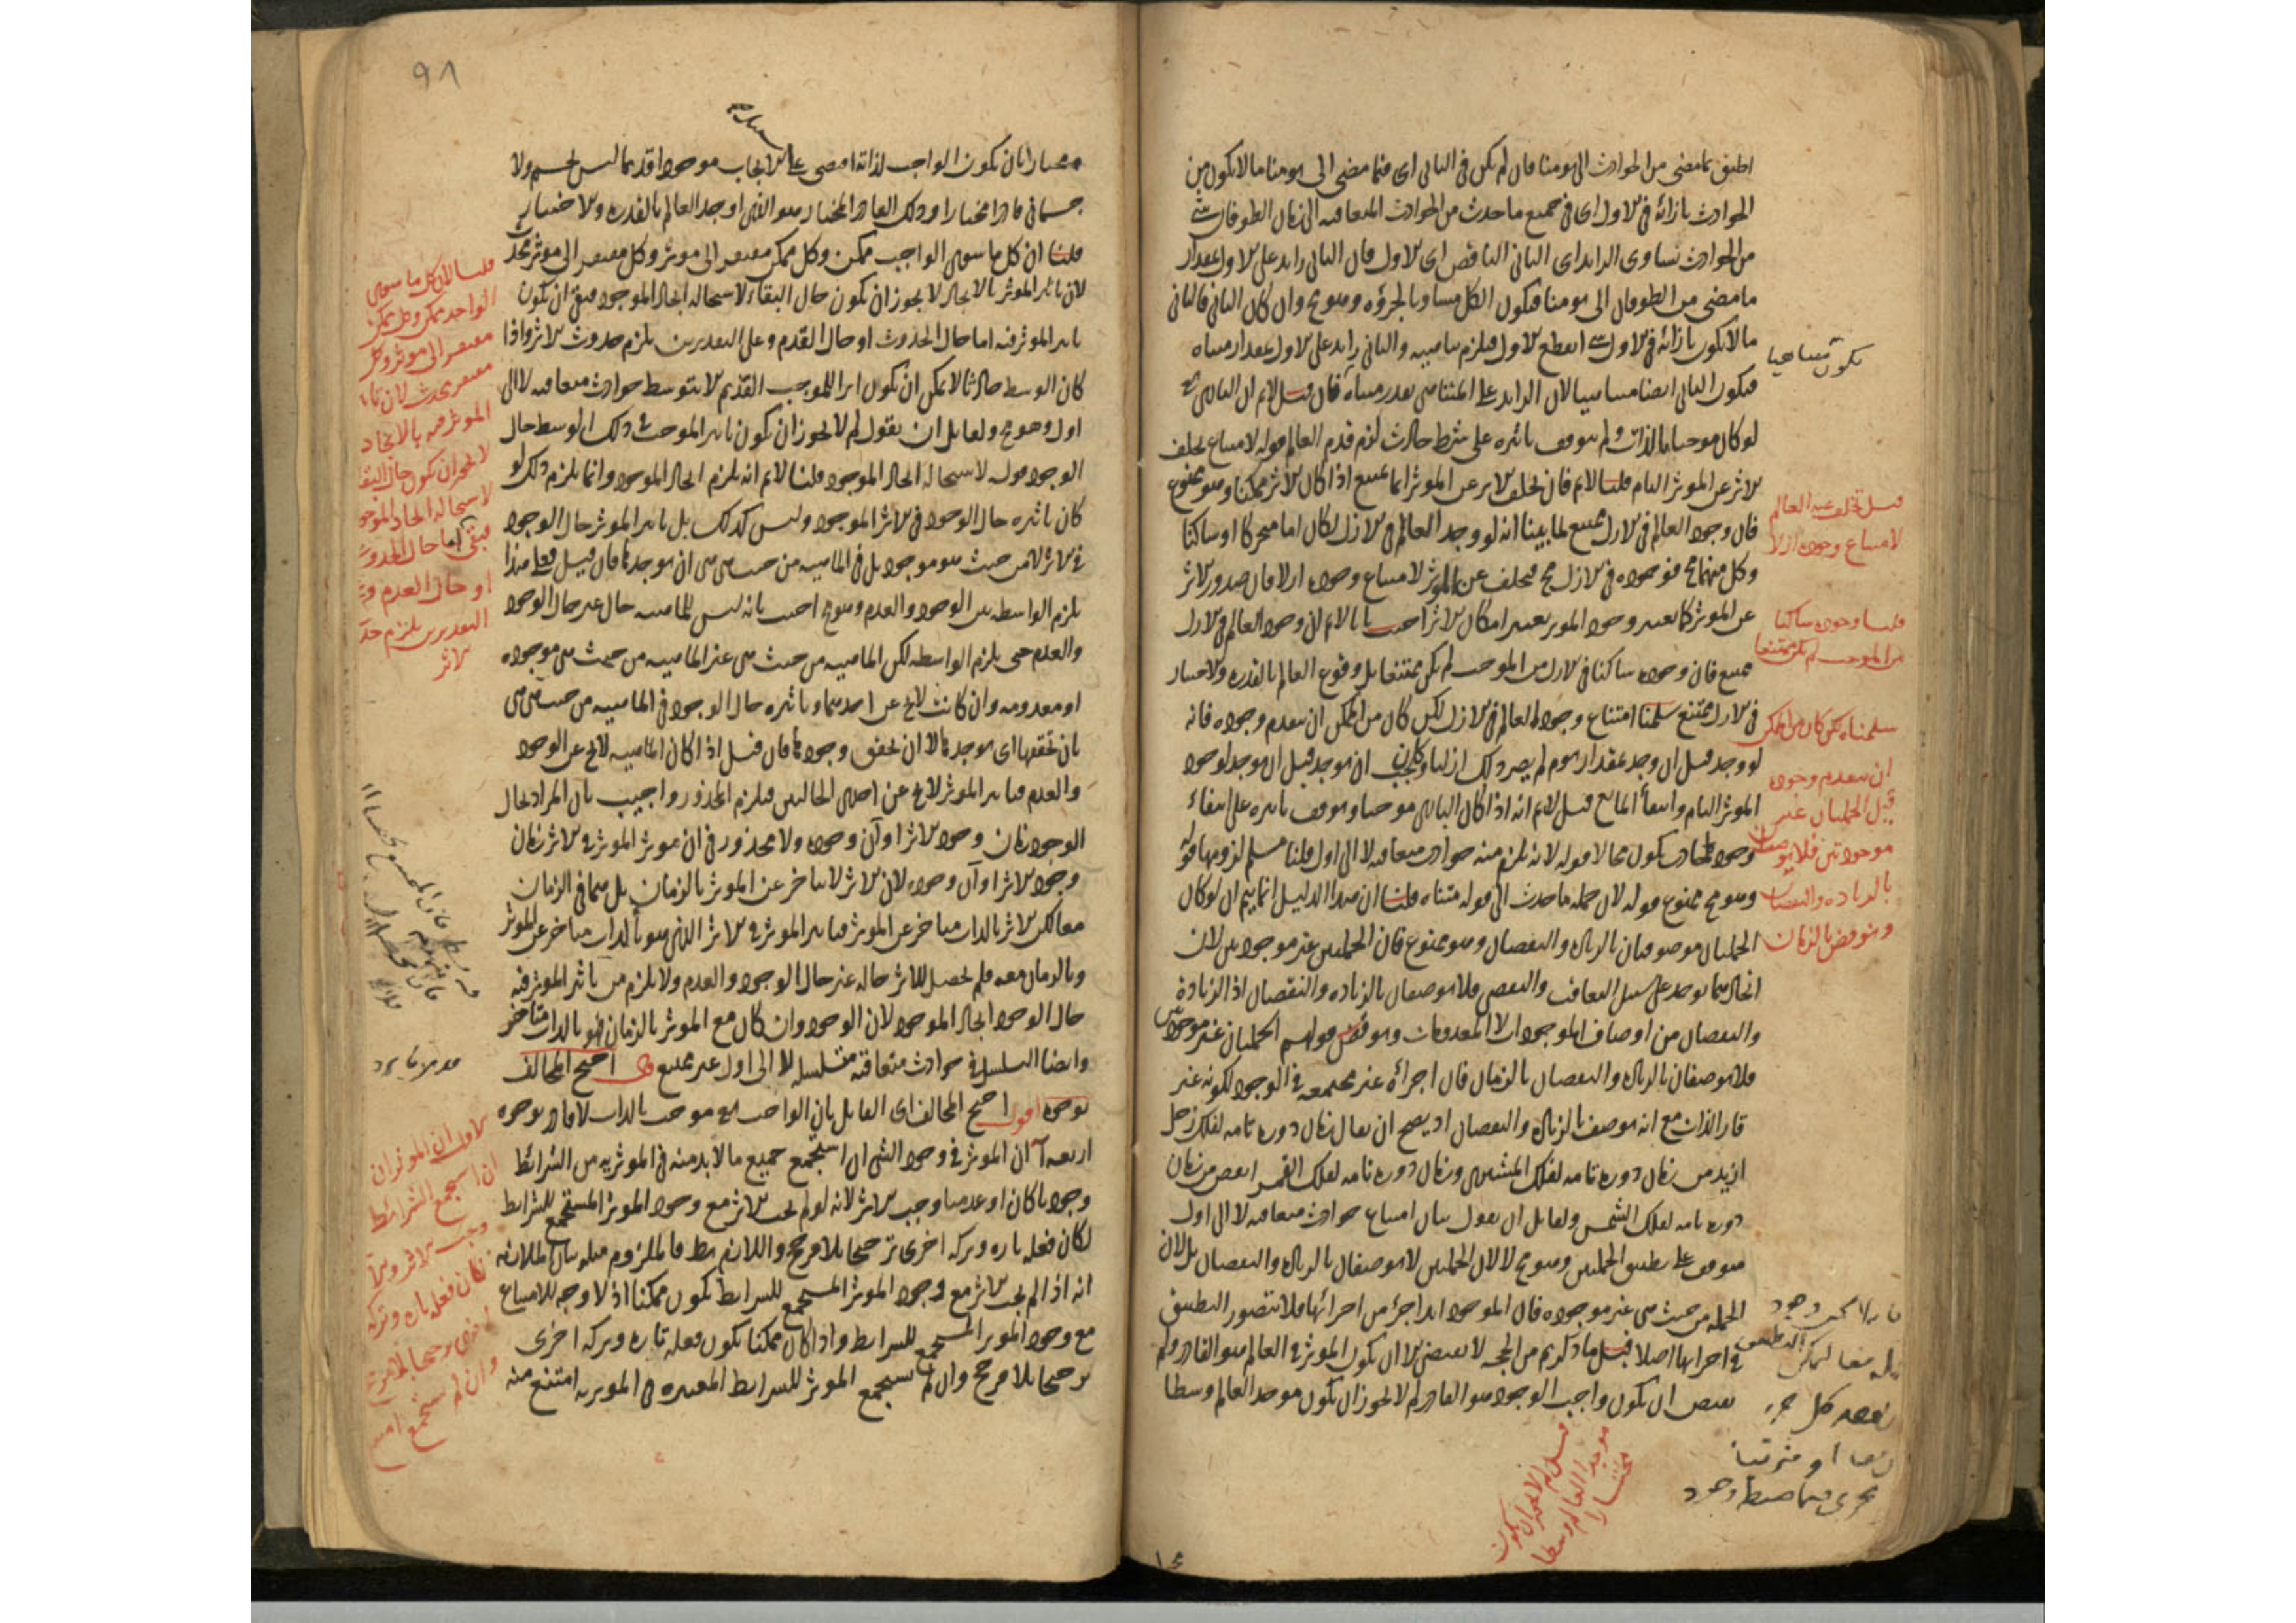 اطبق بما مضى من الحوادث الى يومنا فان لم يكن فى الثانى اى فيما مضى الى يومنا ما لا يكون من
الحوادث بازائه فى الاول اى فى جميع ما حدث من الحوادث المتعاقبة الى زمان الطوفان شئ
من الحوادث تساوى الزائد اى الثانى الناقص اى الاول فان الثانى زايد على الاول بمقدار
ما مضى من الطوفان الى يومنا فيكون الكل مساويا لجزؤه وهو مح وان كان الثانى فالثانى
ما لا يكون بازائه فى الاول شئ انقطع الاول فيلزم تناهيه والثانى زايد على الاول بمقدار متناه
فيكون الثانى ايضا متناهيا لان الزايد على المتناهى بقدر متناه قال قيل لانم ان البارى تع
لو كان موجبا بالذات ولم يتوقف تاثيره على شرط حادث لزم قدم العالم قوله لامتناع تخلف
الاثر عن الموثر التام قلنا لانم فان تخلف الاثر عن الموثر انما يمتنع اذا كان الاثر ممكنا وهو ممنوع
فان وجود العالم فى الازل ممتنع لما بينا انه لو وجد العالم فى الازل لكان اما متحركا او ساكنا
وكل منهما مح فوجوده فى الازل مح فتخلف عن الموثر لامتناع وجوده ازلا فان صدور الاثر
عن الموثر كما يعتبر وجود الموثر يعتبر امكان الاثر اجيب بانا لانم ان وجود العالم فى الازل
ممتنع فان وجوده ساكنا فى الازل من الموجب لم يكن ممتنعا بل وقوع العالم بالقدرة والاختيار
فى الازل ممتنع سلمنا امتناع وجود العالم فى الازل لكن كان من الممكن ان يتقدم وجوده فانه
لو وجد قبل ان وجد بمقدار يوم لم يصر ذلك ازليا وكان يجب ان يوجد قبل ان يوجد لوجود
الموثر التام وانتفاء المانع قيل لانم انه اذا كان البارى موجبا ويتوقف تاثيره على انتفاء
وجود الحادث يكون محالا قوله لانه يلزم منه حوادث متعاقبة لا الى اول قلنا مسلم لزومها قوله
وهو مح ممنوع قوله لان جملة ما حدث الى قوله متناه قلنا ان هذا الدليل انما يتم ان لو كان
الجملتان موصوفتان بالزيادة والنقصان وهو ممنوع فان الجملتين غير موجودتين لان
اتحادهما يوجد على سبيل التعاقب والتقضى فلا يوصفان بالزيادة والنقصان اذ الزيادة
والنقصان من اوصاف الموجودات لا المعدومات ونوقض قولهم الجملتان غير موجودتين
فلا يوصفان بالزيادة والنقصان بالزمان فان اجزائه غير مجتمعة فى الوجود لكونه غير
قار الذات مع انه يوصف بالزيادة والنقصان اذ يصح ان يقال زمان دورة تامة لفلك زحل
ازيد من زمان دورة تامة لفلك المشترى وزمان دورة تامة لفلك القمر انقص من زمان
دورة تامة لفلك الشمس ولقايل ان يقول بيان امتناع حوادث متعاقبة لا الى اول
متوقف على تطبيق الجملتين وهو مح لا لان الجملتين لا يوصفان بالزيادة والنقصان بل لان
الجملة من حيث هى غير موجودة فان الموجود ابدا جزء من اجزائها فلا يتصور التطبيق
فى اجزائها اصلا قيل ما ذكرتم من الحجة لا يقتضى الا ان يكون الموثر فى العالم هو القادر ولم
يقتض ان يكون واجب الوجود هو القادر لم لا يجوز ان يكون موجد العالم وسطا
يكون متناهيا
قيل تخلف عنه العالم
لامتناع وجوده ازلا
قلنا وجوده ساكنا
من الموجب لم يكن ممتنعا
سلمناه لكن كان من الممكن
ان يتقدم وجوده
قيل الجملتان غير
موجودتين فلا يوصفان
بالزيادة والنقصان
ونوقض بالزمان
قيل لم لا يجوز ان يكون
موجد العالم وسطا
مختارا
٩٨
مختارا بان يكون الواجب لذاته اقتضى على الايجاب موجودا قديما ليس بجسم ولا
جسمانى قادرا مختارا وذلك القادر المختار هو الذى اوجد العالم بالقدرة والاختيار
قلنا ان كل ما سوى الواجب ممكن وكل ممكن مفتقر الى موثر وكل مفتقر الى موثر محدث
لان تاثير الموثر بالايجاد لا يجوز ان يكون حال البقاء لاستحالة ايجاد الموجود فبقى ان يكون
تاثير الموثر فيه اما حال الحدوث او حال القدم وعلى التقديرين يلزم حدوث الاثر واذا
كان الوسط حادثا لا يمكن ان يكون اثرا للموجب القديم الا بتوسط حوادث متعاقبة لا الى
اول وهو مح ولقايل ان يقول لم لا يجوز ان يكون تاثير الموجب فى ذلك الوسط حال
الوجود قوله لاستحالة ايجاد الموجود قلنا لانم انه يلزم ايجاد الموجود وانما يلزم ذلك لو
كان تاثيره حال الوجود فى الاثر الموجود وليس كذلك بل تاثير الموثر حال الوجود
فى الاثر لا من حيث هو موجود بل فى الماهية من حيث هى هى ان يوجدها فان قيل فعلى هذا
يلزم الواسطة بين الوجود والعدم وهو مح اجيب بانه ليس للماهية حال غير حال الوجود
والعدم حتى يلزم الواسطة لكن الماهية من حيث هى غير الماهية من حيث هى موجودة
او معدومة وان كانت لا تخ عن احدهما وتاثيره حال الوجود فى الماهية من حيث هى هى
بان تحققها اى يوجدها لا ان تحقق وجودها فان قيل اذا كان الماهية لا تخ عن الوجود
والعدم فتاثير الموثر لا يخ عن احدى الحالتين فيلزم المحذور واجيب بان المراد بحال
الوجود زمان وجود الاثر او آن وجوده ولا محذور فى ان يوثر الموثر فى الاثر زمان
وجود الاثر او آن وجوده لان الاثر لا يتاخر عن الموثر بالزمان بل هما فى الزمان
معا لكن الاثر بالذات متاخر عن الموثر فتاثير الموثر فى الاثر الذى هو بالذات متاخر عن الموثر
وبالزمان معه فلم يحصل للاثر حالة غير حال الوجود والعدم ولا يلزم من تاثير الموثر فيه
حال الوجود ايجاد الموجود لان الوجود وان كان مع الموثر بالزمان فهو بالذات متاخر
وايضا التسلسل فى حوادث متعاقبة متسلسلة لا الى اول غير ممتنع قال احتج المخالف
بوجوه اقول احتج المخالف اى القايل بان الواجب تع موجب بالذات لا قادر بوجوه
اربعة آ ان الموثر فى وجود الشئ ان استجمع جميع ما لا بد منه فى الموثرية من الشرائط
وجوديا كان او عدميا وجب الاثر لانه لو لم يجب الاثر مع وجود الموثر المستجمع للشرائط
لكان فعله تارة وتركه اخرى ترجيحا بلا مرجح واللازم بط فالملزوم مثله بيان الملازمة
انه اذا لم يجب الاثر مع وجود الموثر المستجمع للشرايط يكون ممكنا اذ لا وجه للامتناع
مع وجود الموثر المستجمع للشرايط واذا كان ممكنا يكون فعله تارة وتركه اخرى
ترجيحا بلا مرجح وان لم يستجمع الموثر للشرايط المعتبرة فى الموثرية امتنع منه
قلنا لان كل ما سوى
الواحد ممكن وكل ممكن
مفتقر الى موثر وكل
مفتقر محدث لان تاثير
الموثر فيه بالايجاد
لا يجوز ان يكون حال البقا
لاستحالة ايجاد الموجود
فبقى اما حال الحدوث
او حال العدم وعلى
التقديرين يلزم حدوث
الاثر
الاول ان الموثر ان
ان استجمع الشرائط
وجب الاثر والا
لكان فعله تارة وتركه
اخرى ترجيحا بلا مرجح
وان لم يستجمع امتنع